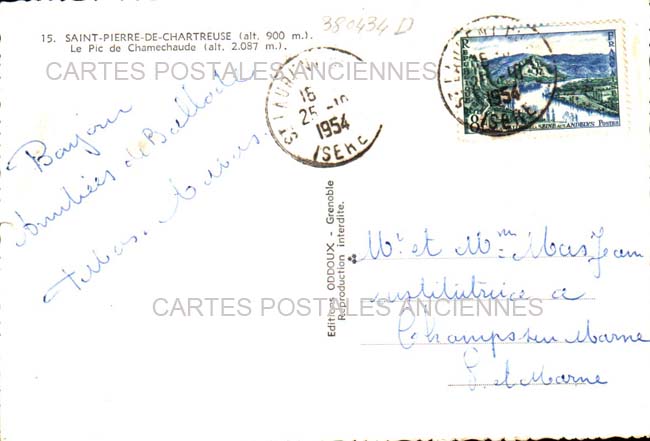 15. SAINT-PIERRE-DE-CHARTREUSE (alt. 900 m.).
Le Pic de Chamechaude (alt. 2.087 m.).
380434 D
CARTES POSTALES ANCIENNES
ST LAURENT
16
25-10
1954
ISERE
1954
ISERE
8F
ANDELYS POSTES
Bonjour
de Ballade
Editions ODDOUX - Grenoble
Reproduction interdite.
Mr et Mme Mas Jean
institutrice a
Champs sur Marne
S et Marne
CARTES POSTALES ANCIENNES